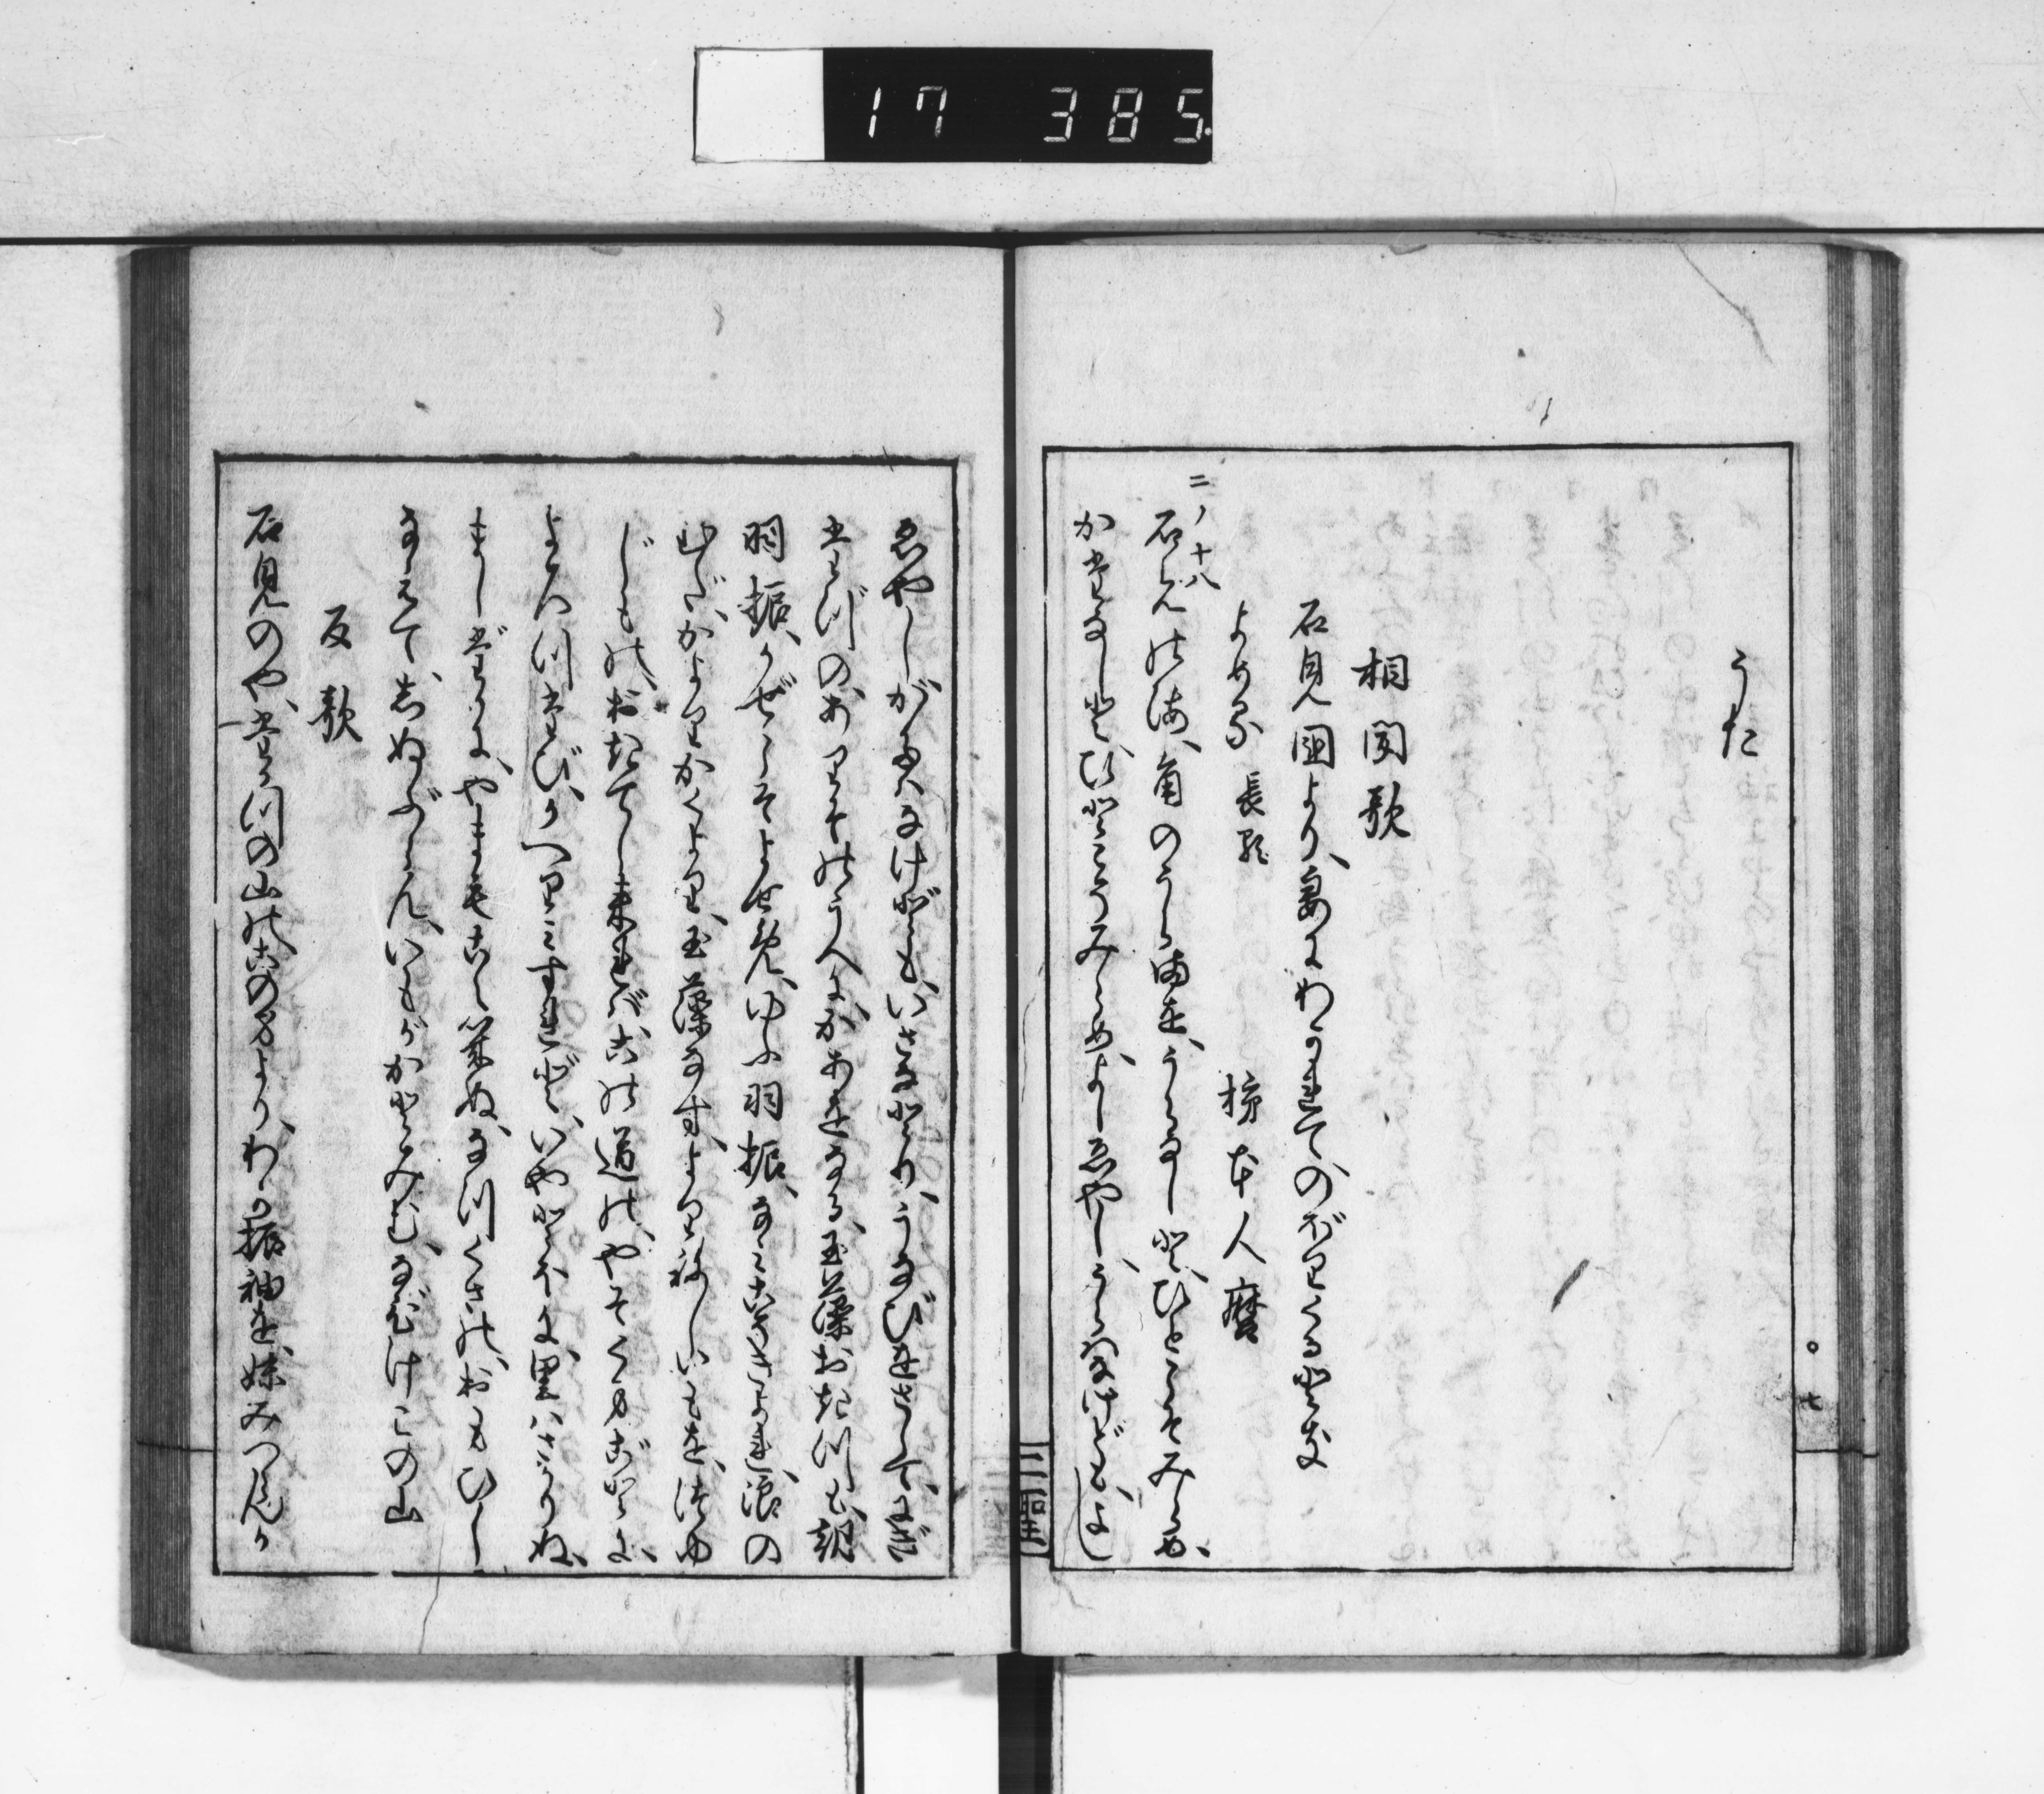 17 385
うた
相聞歌
石見國より、妻にわかれて、のぼりくるときに
よめる 長歌 柿本人麿
二ノ十八
石見の海、角のうら満を、うらなしと、ひとこそみらめ、
かたなしと、ひとこそみらめ、よしゑやし、うらはなけども、よし
七
ゑやし、がたはなけども、いさなとり、うなびをさして、わだ
たづの、ありそのうへに、かあをなる、玉藻おきつも、朝
羽振、かぜこそよせめ、ゆふ羽振、なみこそきよれ、浪の
むた、かよりかくより、玉藻なす、よりねしいもを、つゆ
じもの、おきてし来れば、この道の、やそくまごとに、
よろづたび、かへりみすれど、いやとほに、里はさかりぬ、
ましたかに、やまもこえ来ぬ、なつくさの、おもひし
なえて、しぬぶらん、いもがかどみむ、なびけこの山
反歌
石見のや、たかつの山の、このまより、わが振袖を、妹みつらんか